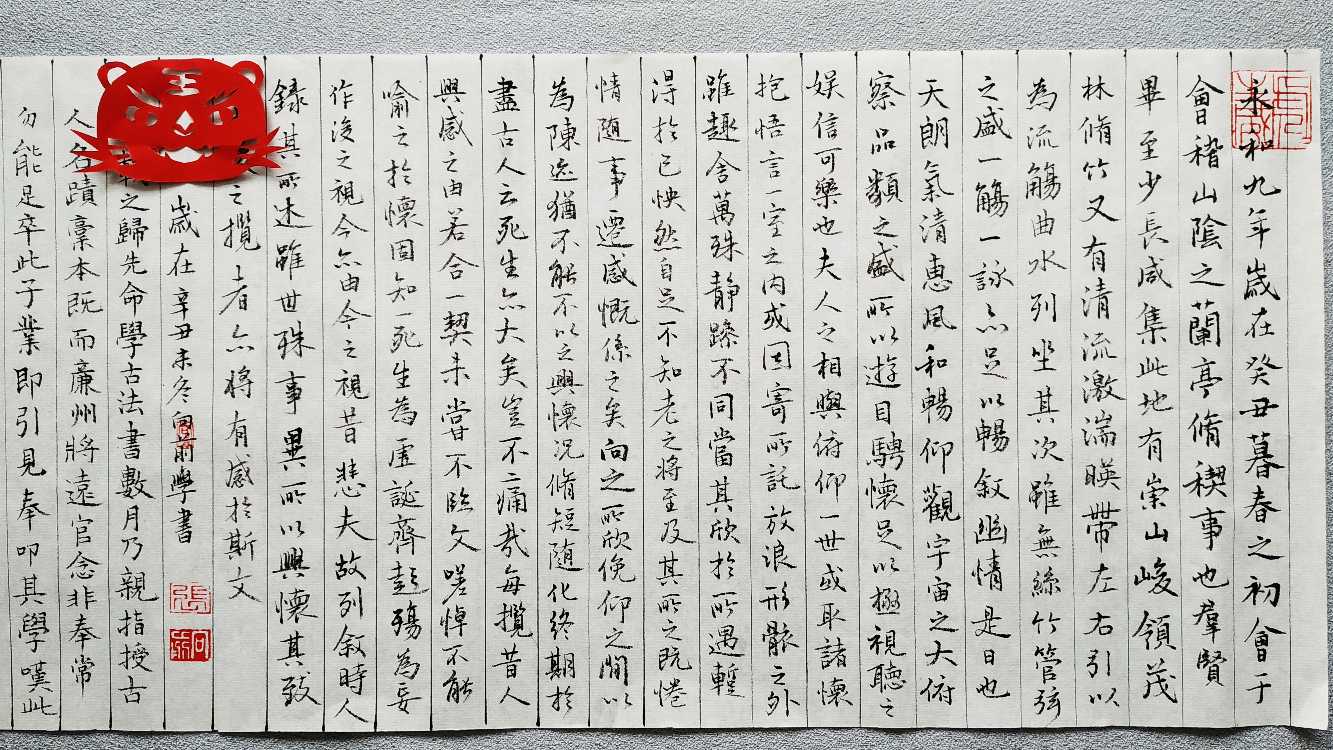 永和九年歲在癸丑暮春之初會于
會稽山陰之蘭亭脩稧事也羣賢
畢至少長咸集此地有崇山峻領茂
林脩竹又有清流激湍暎帶左右引以
為流觴曲水列坐其次雖無絲竹管弦
之盛一觴一詠亦足以暢敘幽情是日也
天朗氣清惠風和暢仰觀宇宙之大俯
察品類之盛所以遊目騁懷足以極視聽之
娛信可樂也夫人之相與俯仰一世或取諸懷
抱悟言一室之內或因寄所託放浪形骸之外
雖趣舍萬殊靜躁不同當其欣於所遇蹔
得於己怏然自足不知老之將至及其所之既惓
情隨事遷感慨係之矣向之所欣俛仰之間以
為陳迹猶不能不以之興懷況脩短隨化終期於
盡古人云死生亦大矣豈不痛哉每攬昔人
興感之由若合一契未嘗不臨文嗟悼不能
喻之於懷固知一死生為虛誕齊彭殤為妄
作後之視今亦由今之視昔悲夫故列敘時人
錄其所述雖世殊事異所以興懷其致
之攬者亦將有感於斯文
歲在辛丑末冬向前學書
張
之歸先命學古法書數月乃親指授古
人名蹟稾本既而廉州將遠官念非奉常
勿能足卒此子業即引見奉叩其學嘆此